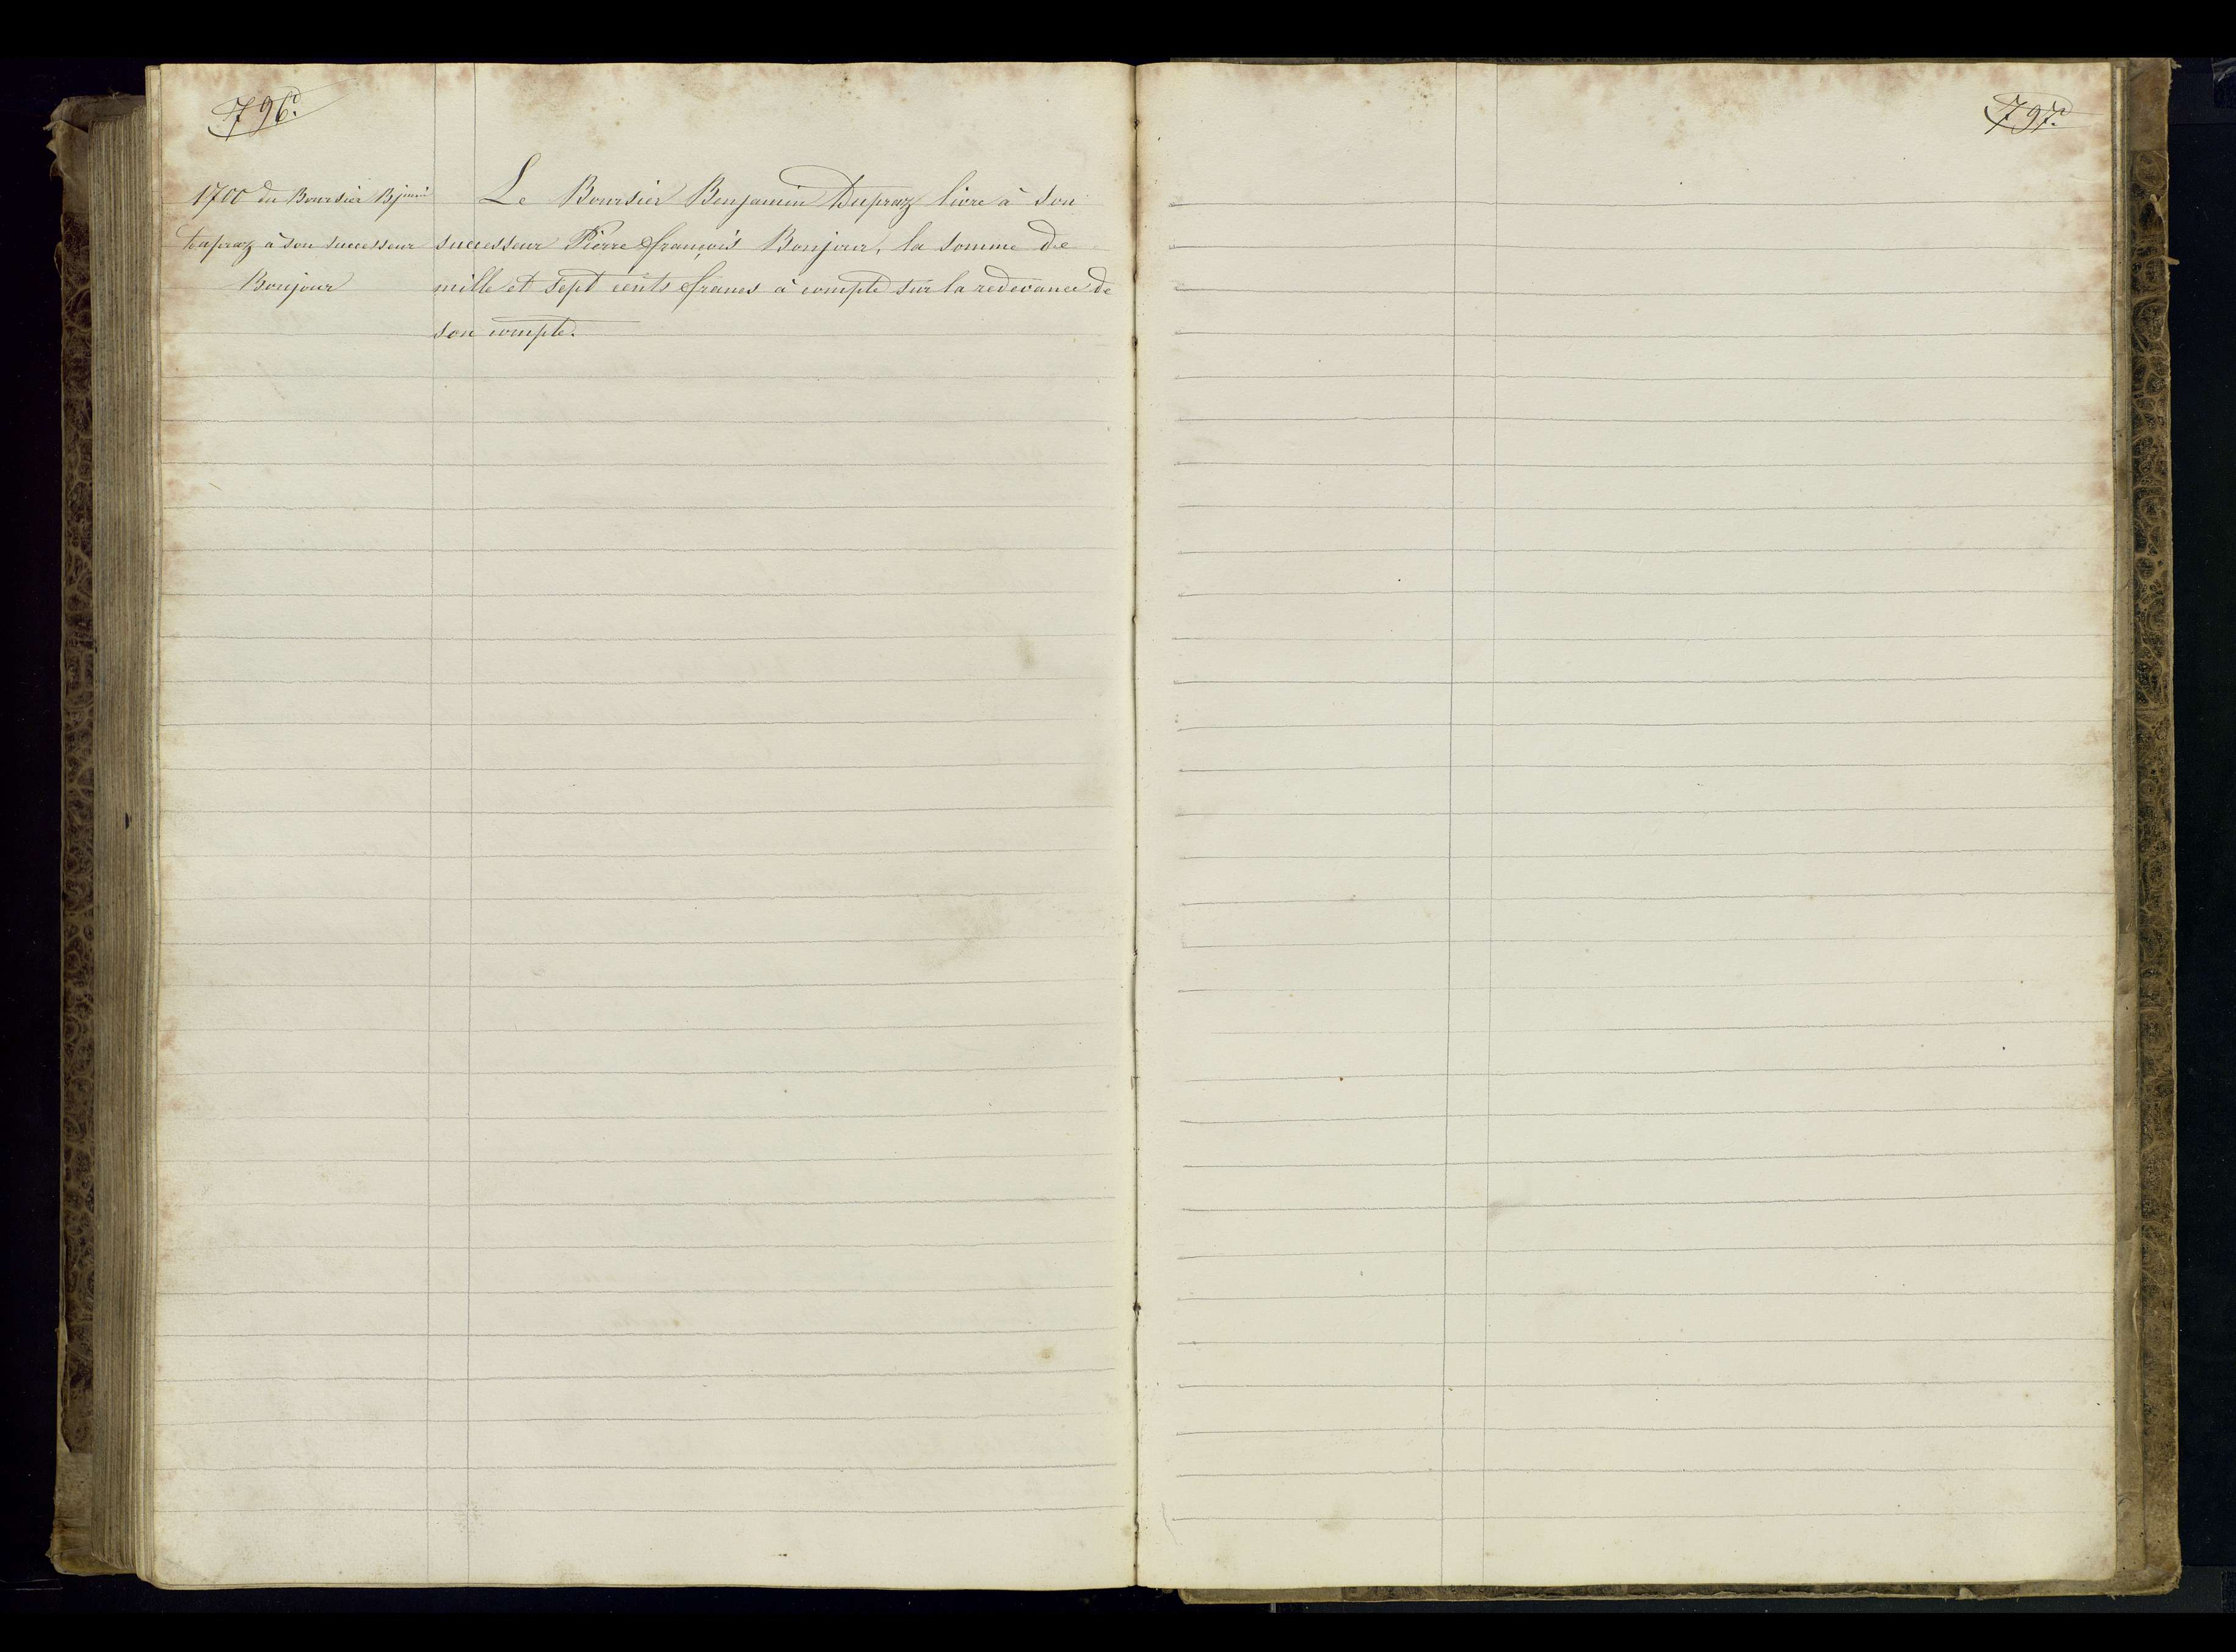 796.
1700 du Boursier Bjamin
Dupraz à son successeur
Bonjour
Le Boursier Benjamin Dupraz livre à son
successeur Pierre françois Bonjour, la somme de
mille et sept cents francs à compte sur la redevance de
son compte.
797.